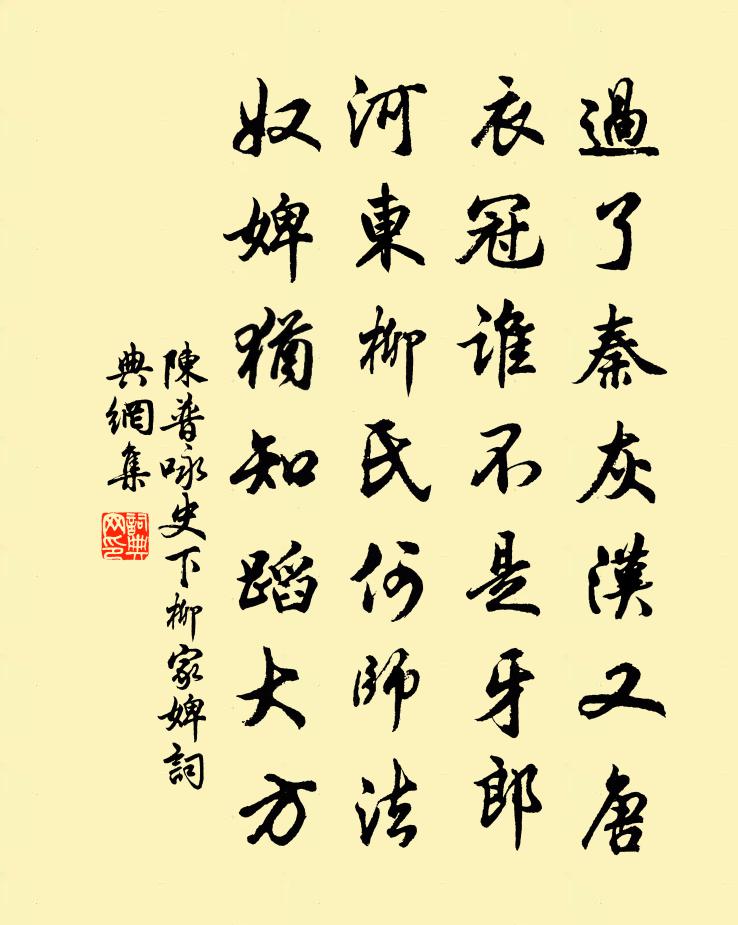 過了秦灰漢又唐
衣冠誰不是牙郎
河東柳氏何師法
奴婢猶知蹈大方
陳普咏史下柳家婢詞
典網集
詞典
网印